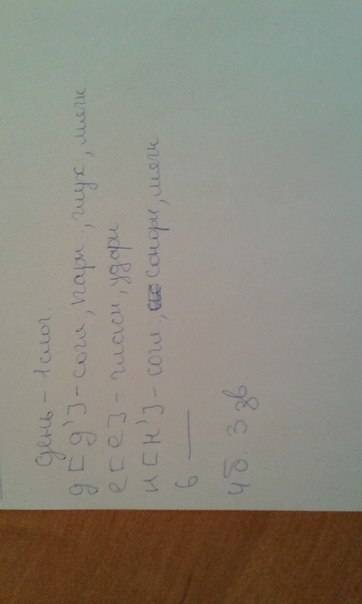 день - 1 слог
д [д'] - согл, парн, глух, мягк
е [е] - гласн, ударн
н [н'] - согл, сонорн, мягк
ь ———
4б 3 зв